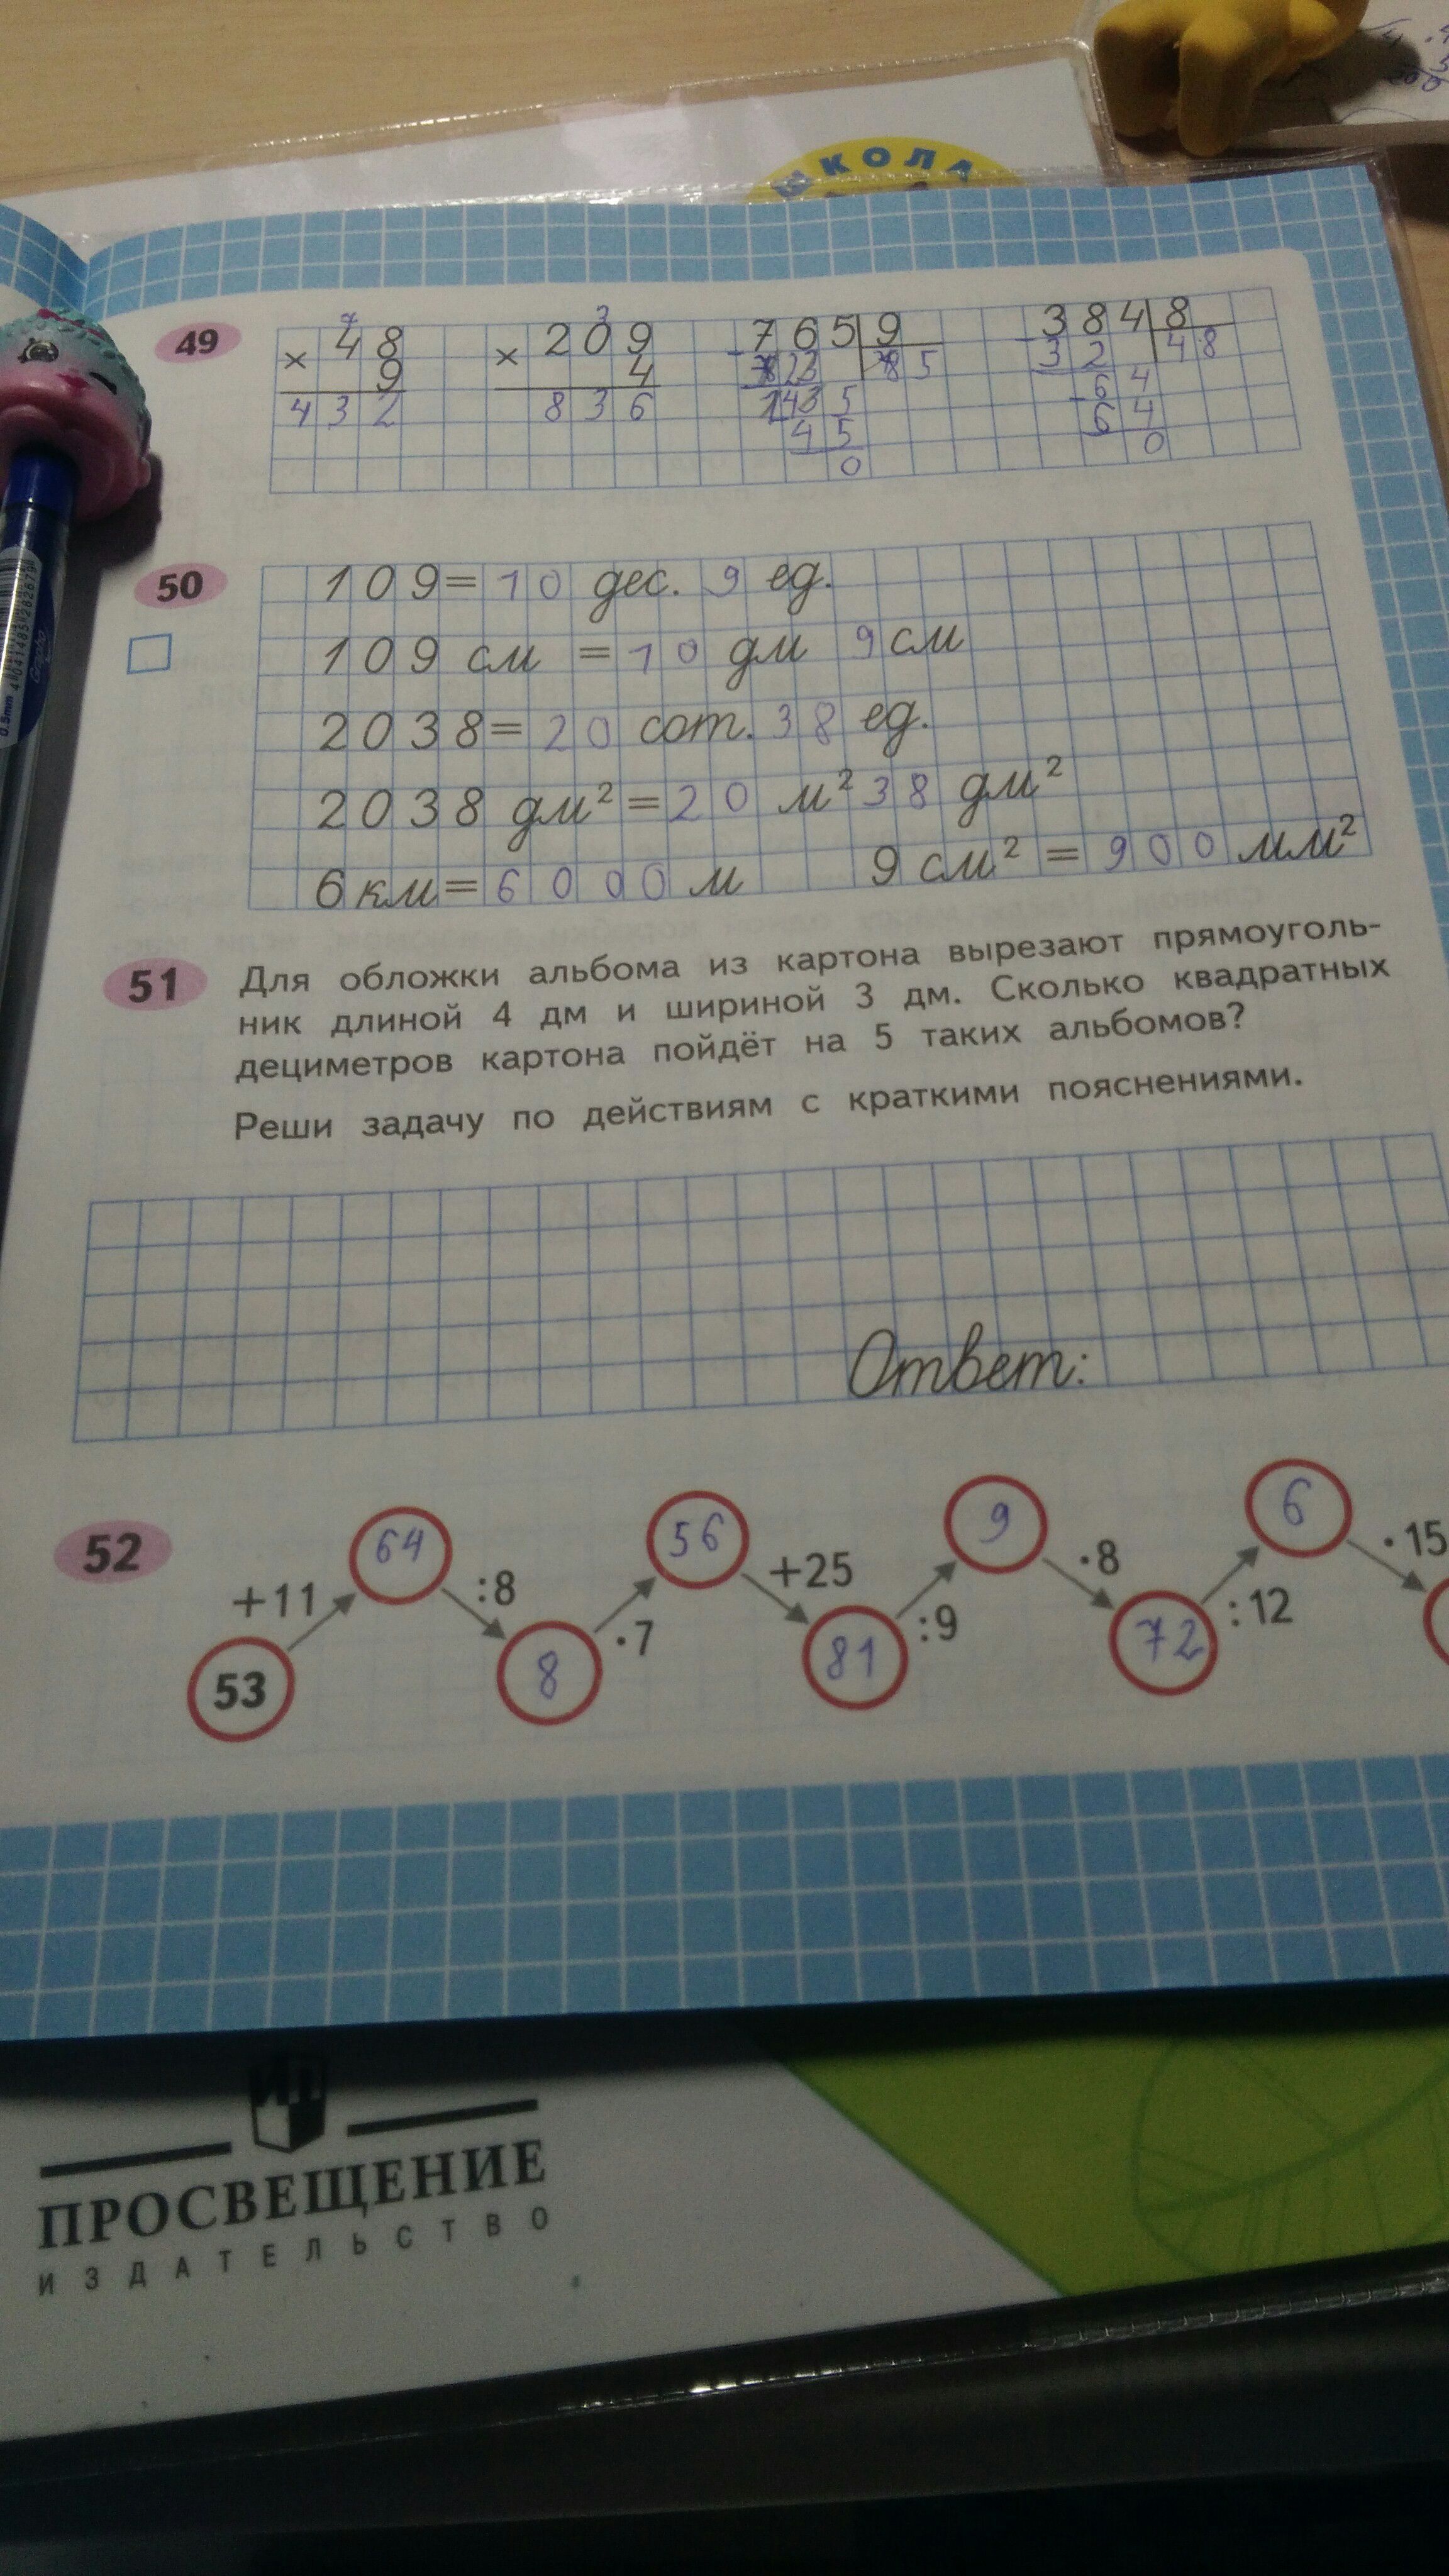 ШКОЛА
49
7
48
× 9
432
3
209
× 4
836
765 9
85
45
45
0
384 8
32 48
64
64
0
50
109=10 дес. 9 ед.
109 см =10 дм 9 см
2038=20 сот. 38 ед.
2038 дм² =20 м² 38 дм²
6 км=6000 м 9 см² = 900 мм²
51 Для обложки альбома из картона вырезают прямоуголь-
ник длиной 4 дм и шириной 3 дм. Сколько квадратных
дециметров картона пойдёт на 5 таких альбомов?
Реши задачу по действиям с краткими пояснениями.
Ответ:
52
53 +11 64 :8 8 ·7 56 +25 81 :9 9 ·8 72 :12 6 ·15
ПРОСВЕЩЕНИЕ
ИЗДАТЕЛЬСТВО